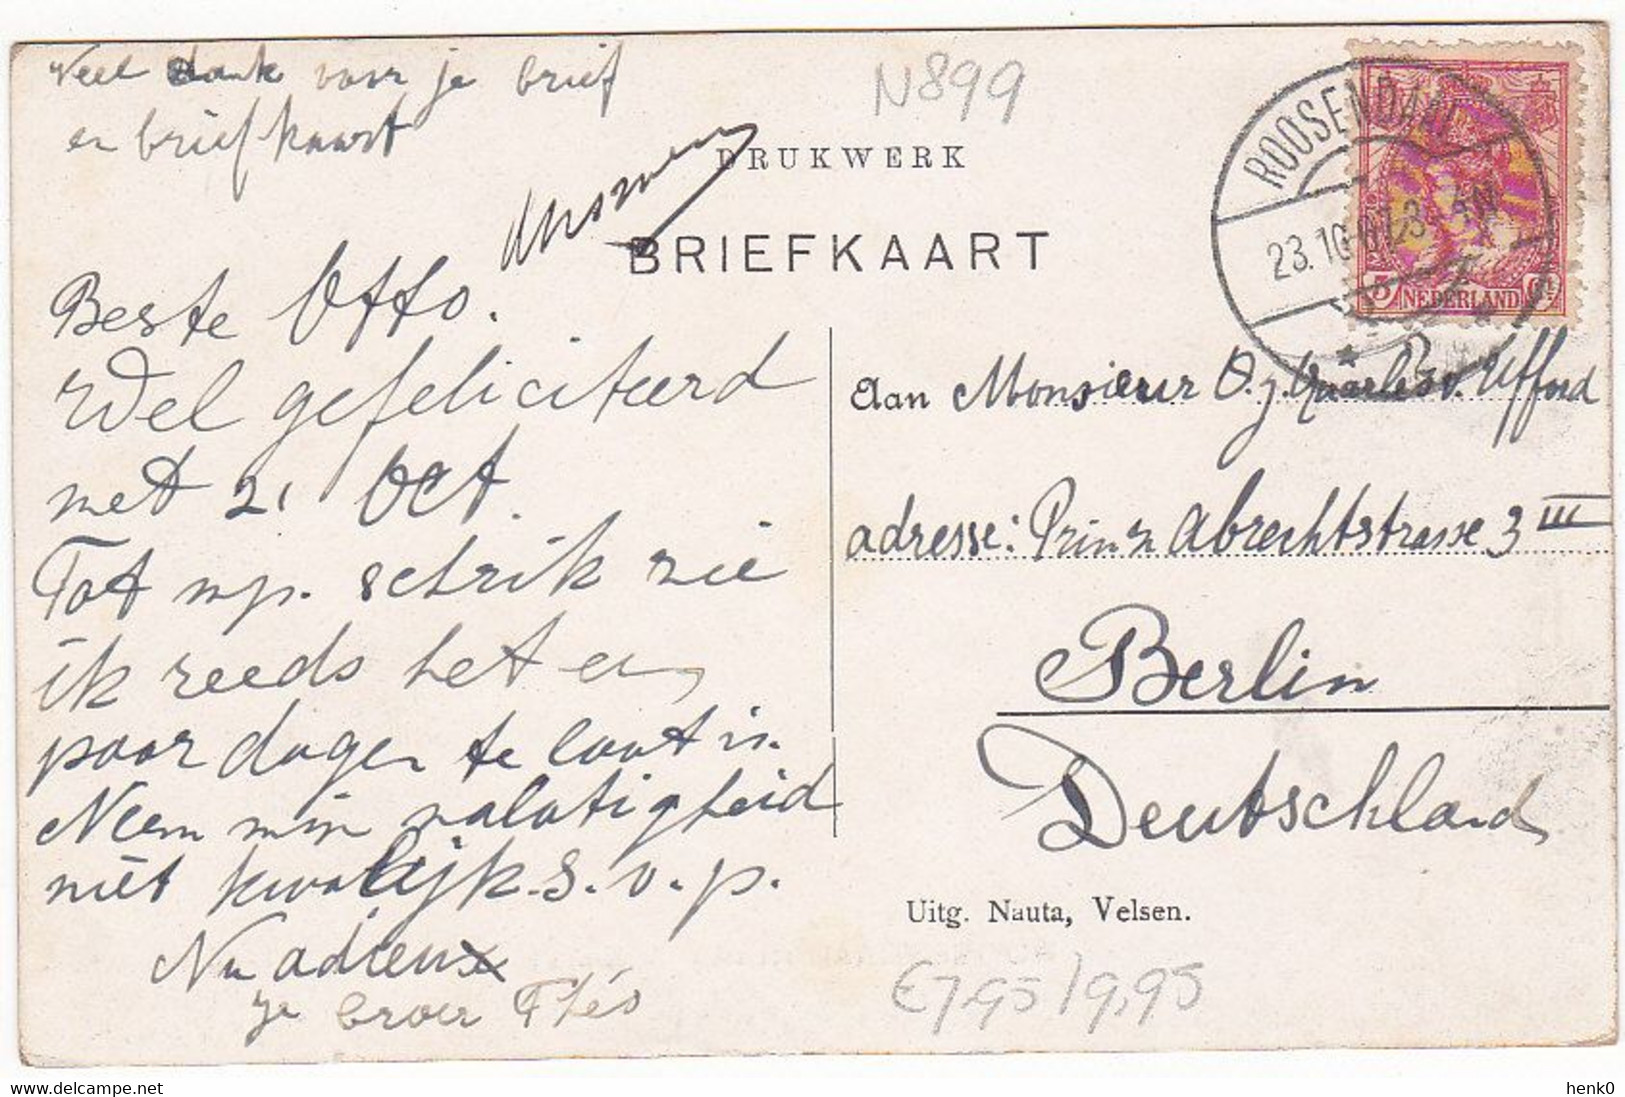 Veel dank voor je brief
en briefkaart
N899
DRUKWERK
BRIEFKAART
ROOSENDAAL
23.10.
5 NEDERLAND CT
Beste Otto.
Wel gefeliciteerd
met 21 Oct.
Tot mp. schrik zie
ik reeds het en
paar dagen te laat is.
Neem min nalatigheid
niet kwalijk s.v.p.
Nu adieu
je broer
Aan Monsieur O. J. Quarles v. Ufford
adresse: Prinz Abrechtstrasse 3 III
Berlin
Deutschland
Uitg. Nauta, Velsen.
€7,95 / 9,95
delcampe.net
henk0